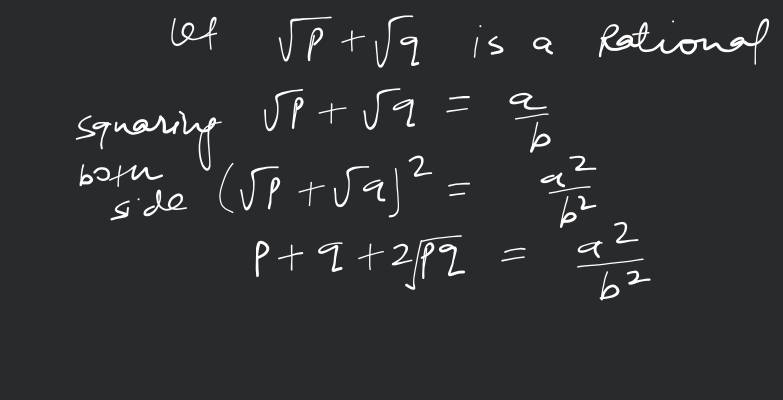 let √p + √q is a Rational
squaring √p + √q = a/b
both
side (√p + √q)² = a²/b²
p + q + 2√pq = a²/b²